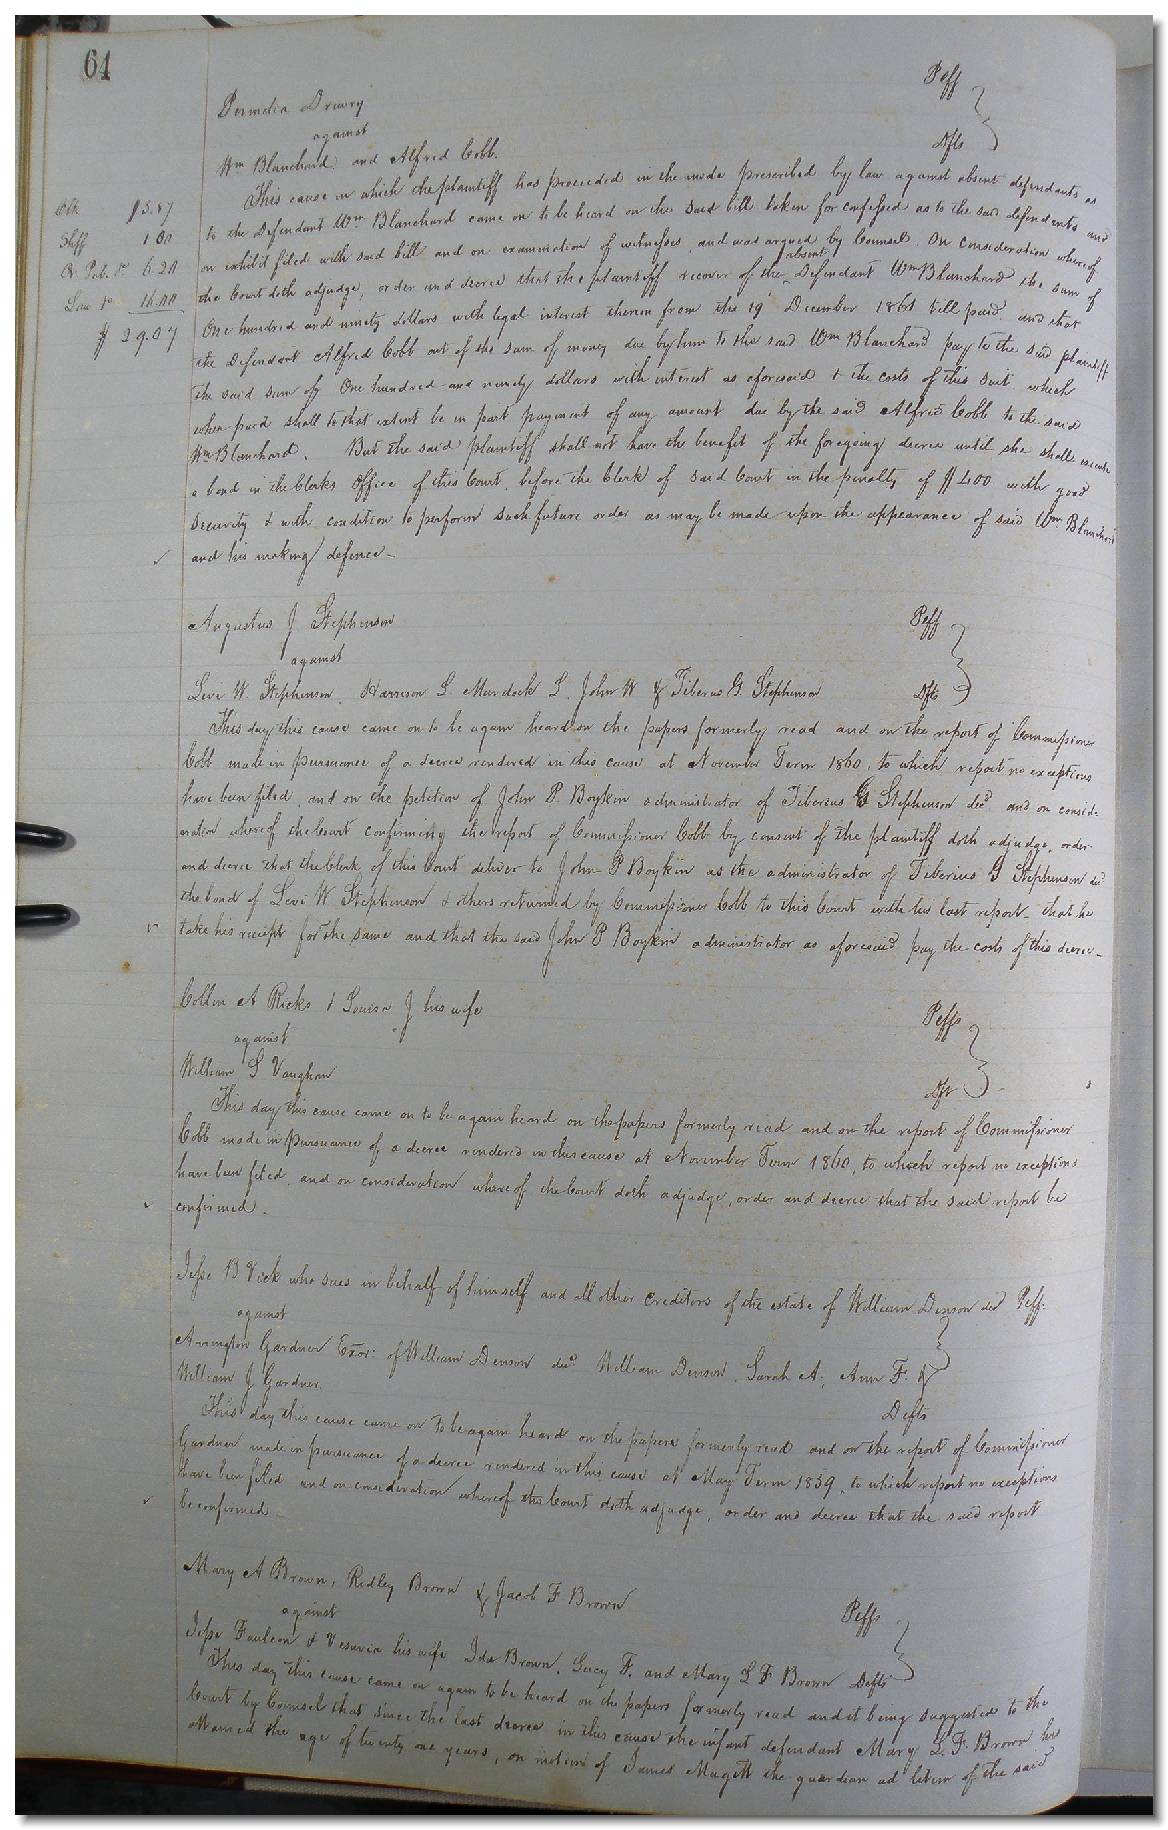 64
Permelia Drewry Plff
against
Wm Blanchard and Alfred Cobb. Dfts
This cause in which the plaintiff has proceeded in the mode prescribed by law against absent defendants as
to the Defendant Wm Blanchard came on to be heard on the said bill taken for confessed as to the said defendants and
on exhibit filed with said bill and on examination of witnesses, and was argued by Counsel. On consideration whereof
the Court doth adjudge, order and decree that the plaintiff recover of the absent Defendant Wm Blanchard the sum of
One hundred and ninety dollars with legal interest therein from the 19 December 1861 till paid. and that
the Defendant Alfred Cobb out of the sum of money due by him to the said Wm Blanchard pay to the said plaintiff
the said sum of One hundred and ninety dollars with interest as aforesaid & the costs of this suit. which
when paid shall to that extent be in part payment of any amount due by the said Alfred Cobb to the said
Wm Blanchard. But the said plaintiff shall not have the benefit of the foregoing decree until she shall execute
a bond in the Clerks Office of this Court, before the Clerk of said Court in the penalty of $400 with good
security & with condition to perform such future order as may be made upon the appearance of said Wm Blanchard
and his making defence -
Clk $5.87
Shff 1.00
6.20
Law 16.00
$ 29.07
Augustus J Stephenson Plff
against
Levi W. Stephenson, Harrison S. Murdock S. John W & Tiberus G. Stephenson Dfts
This day this cause came on to be again heard on the papers formerly read and on the report of Commissioner
Cobb made in pursuance of a decree rendered in this cause at November Term 1860, to which report no exceptions
have been filed, and on the petition of John P. Boykin administrator of Tiberius G Stephenson decd and on consid-
eration whereof the Court confirming the report of Commissioner Cobb by consent of the plaintiff doth adjudge, order
and decree that the Clerk of this Court deliver to John P Boykin as the administrator of Tiberius G Stephenson decd
the bond of Levi W Stephenson & others returned by Commissioner Cobb to this Court with his last report - that he
take his receipt for the same and that the said John P Boykin administrator as aforesaid pay the costs of this decree -
Collin A Ricks & Louisa J his wife Plffs
against
William S Vaughan Dft
This day this cause came on to be again heard on the papers formerly read and on the report of Commissioner
Cobb made in pursuance of a decree rendered in this cause at November Term 1860, to which report no exceptions
have been filed, and on consideration whereof the Court doth adjudge, order and decree that the said report be
confirmed.
Jesse B Vick who sues in behalf of himself and all other creditors of the estate of William Denson decd Plff.
against
Arrington Gardner Exor: of William Denson decd William Denson, Sarah A., Ann F. &
William J. Gardner. Defts
This day this cause came on to be again heard on the papers formerly read and on the report of Commissioner
Gardner made in pursuance of a decree rendered in this cause at May Term 1859, to which report no exceptions
have been filed and on consideration whereof the Court doth adjudge, order and decree that the said report
be confirmed.
Mary A Brown, Ridley Brown & Jacob F Brown Plffs
against
Jesse Faulcon & Vesuvia his wife Ida Brown, Lucy F. and Mary L F Brown Defts
This day this cause came on again to be heard on the papers formerly read and it being suggested to the
Court by Counsel that since the last decree in this cause the infant defendant Mary L. F. Brown has
attained the age of twenty one years, on motion of James Magett the guardian ad litem of the said